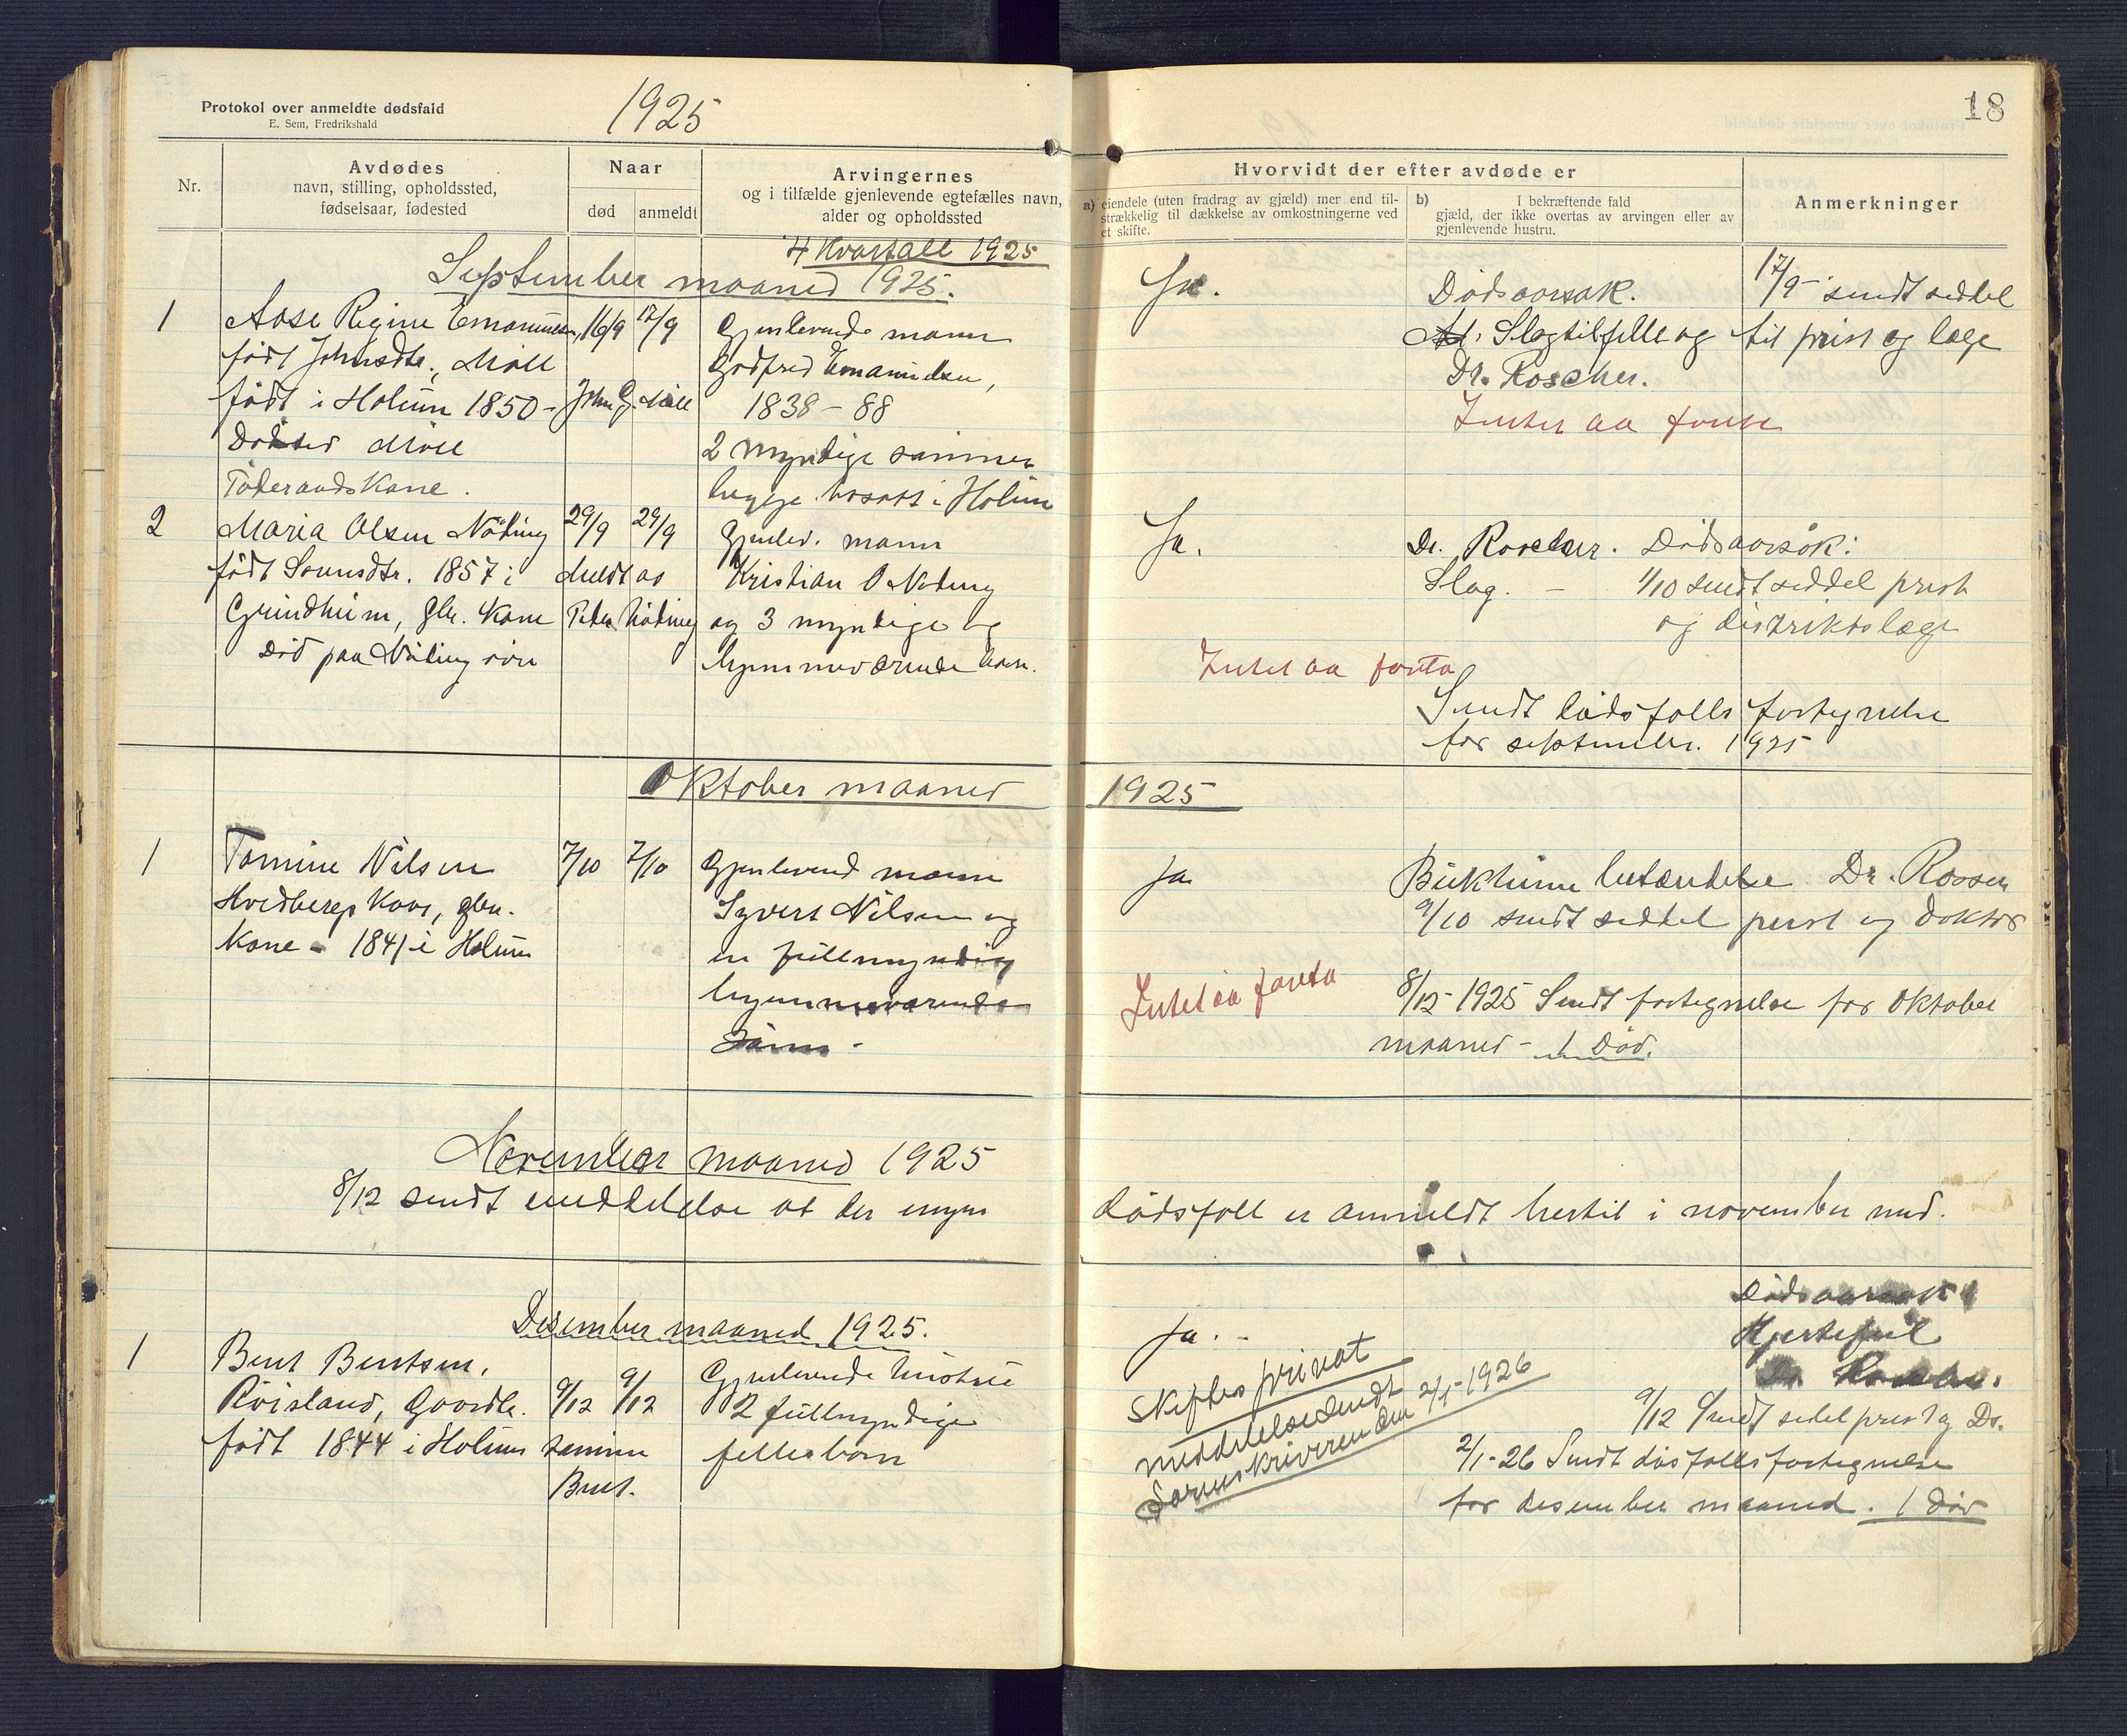 Protokol over anmeldte dødsfald
E. Sem, Fredrikshald
1925
Nr.
Avdødes
navn, stilling, opholdssted,
fødselsaar, fødested
Naar
død
anmeldt
Arvingernes
og i tilfælde gjenlevende egtefælles navn,
alder og opholdssted
4 Kvartall 1925
September maaned 1925.
1
Aase Regine Emanuelsen,
født Johnsdtr., Møll
født i Holum 1850 -
Død sted Møll
Føderaadskone.
16/9
17/9
John G. Møll
Gjenlevende mann
Godfred Emanuelsen,
1838 - 88
2 myndige sønner
begge bosatt i Holum
2
Maria Olsen Nøding
født Sørensdtr. 1857 i
Grindheim, gbr. Kone
Død paa Nøding øvre
29/9
29/9
Meldt as
Peder Nøding
Gjenlev. mann
Kristian O Nøding
og 3 myndige og
hjemmeværende barn.
Oktober maaned
1
Tomine Nilsen
Hvedberg Kone, gbr.
Kone - 1841 i Holum
7/10
7/10
Gjenlevend mann
Syvert Nilsen og
en fullmyndig
hjemmeværende
sønn -
November maaned 1925
8/12 sendt meddelelse at der ingen
Desember maaned 1925.
1
Bent Bentsen,
Røisland, Gaardbr.
født 1844 i Holum
9/12
9/12
Tomine
Bent.
Gjenlevende hustru
2 fullmyndige
fellesbarn
18
Hvorvidt der efter avdøde er
a) eiendele (uten fradrag av gjæld) mer end til-
strækkelig til dækkelse av omkostningerne ved
et skifte.
b) I bekræftende fald
gjæld, der ikke overtas av arvingen eller av
gjenlevende hustru.
Anmerkninger
Ja.
Dødsaarsak.
Slagtilfelle og
Dr. Roscher.
17/9 sendt seddel
til prest og læge
Intet aa foreta
Ja.
Dr. Roscher. Dødsaarsak:
Slag. - 1/10 sendt seddel prest
og distriktslæge
Intet aa foreta
Sendt dødsfalls fortegnelse
for september. 1925
1925
Ja
Bukhinne betændelse Dr. Roscher
9/10 sendt seddel prest og doktor
Intet aa foreta
8/12 - 1925 Sendt fortegnelse for Oktober
maaned - 1 Død.
dødsfall er anmeldt hertil i november mnd.
Ja. -
Dødsaarsak
Hjertefeil
Dr. Roscher.
9/12 Sendt sedel prest og Dr.
Skiftes privat
meddelelse sendt
Sorenskriveren den 2/1 - 1926
2/1 - 26 Sendt døsfalls fortegnelse
for desember maaned. 1 død